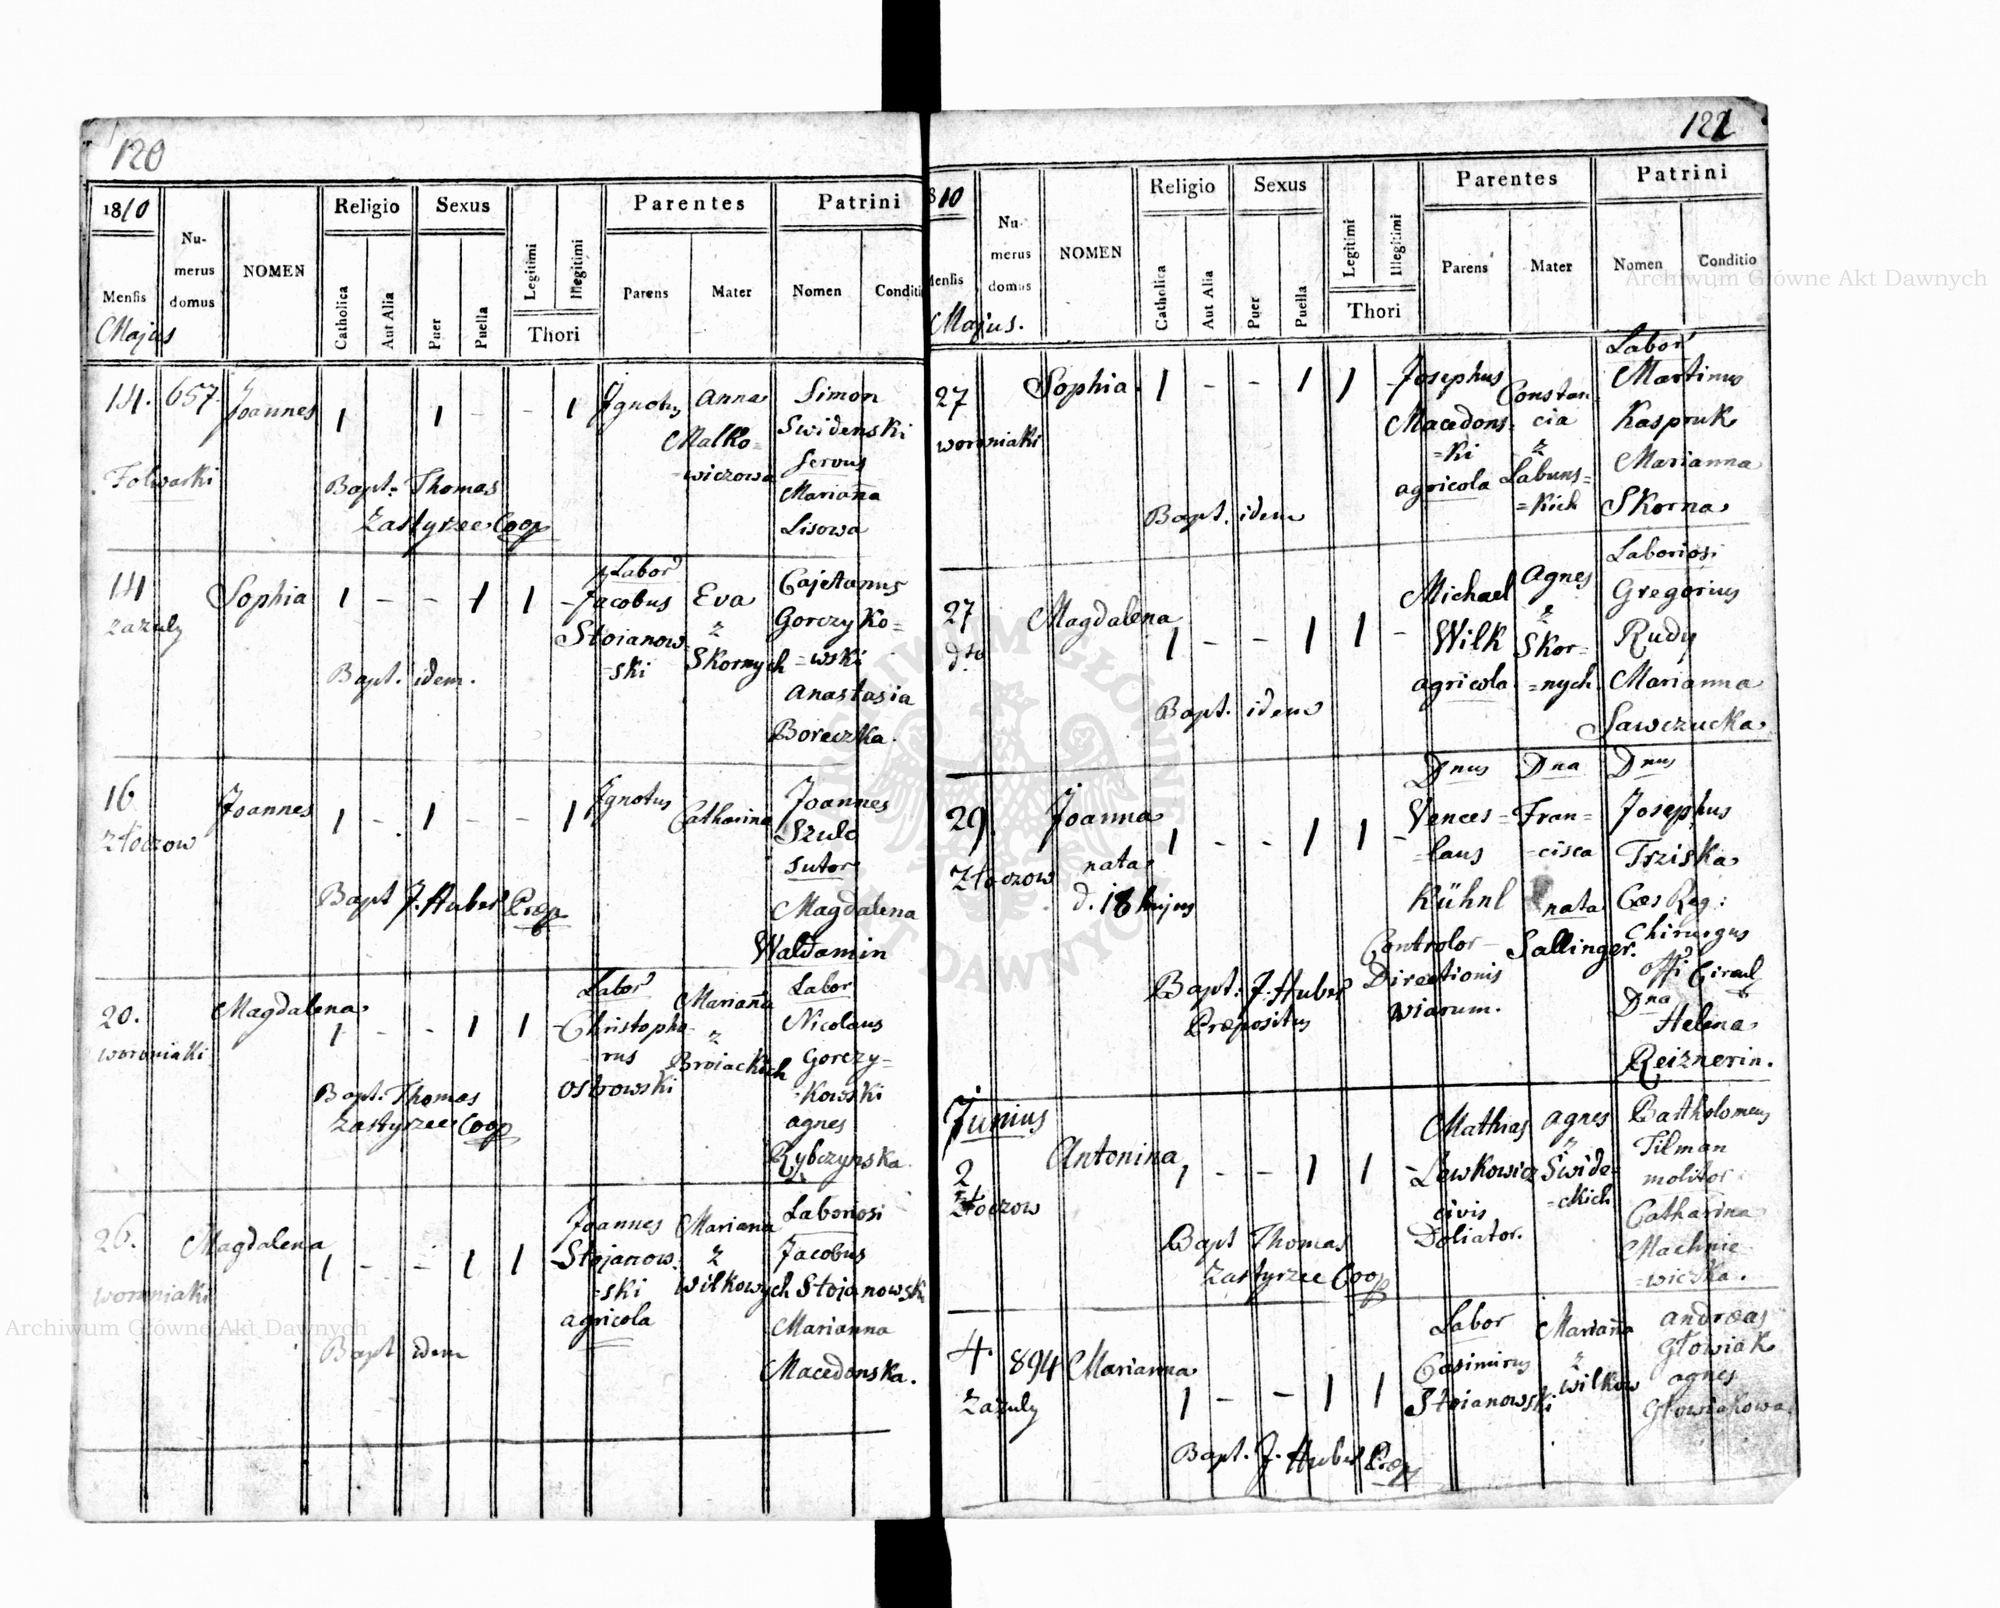 120
1810
Mensis
Majus
Nu-
merus
domus
NOMEN
Religio
Catholica
Aut Alia
Sexus
Puer
Puella
Legitimi
Illegitimi
Thori
Parentes
Parens
Mater
Patrini
Nomen
Conditi
14. 657 Joannes 1 1 - - 1 Ignotus Anna Simon
Malko= Swidenski
=wiczowa Servus
Folwarki Marianna
Bapt: Thomas Lisowa
Zastyrzec Coop
14 Sophia 1 - - 1 1 - Labor Eva Cajetanus
Zazuly Jacobus z Gorczyko=
Stoianow= Skornych =wski
=ski Anastasia
Bapt. idem. Boreczka.
16 Joannes 1 - 1 - - 1 Ignotus Catharina Joannes
Złoczow Szulc
Sutor
Bapt J. Huber Præp Magdalena
Waldamin
20. Magdalena 1 - - 1 1 - Labor Marianna Labor
Woroniaki Christopho= z Nicolaus
rus Broiackich Gorczy=
Ostrowski =kowski
Bapt. Thomas Agnes
Zastyrzec Coop Rybczynska.
26. Magdalena 1 - - 1 1 - Joannes Marianna Laboriosi
Woroniaki Stojanow= z Jacobus
=ski Wilkowych Stojanowsk
agricola Marianna
Bapt idem Macedonska.
122
810
Mensis
Majus.
Nu-
merus
domus
NOMEN
Religio
Catholica
Aut Alia
Sexus
Puer
Puella
Legitimi
Illegitimi
Thori
Parentes
Parens
Mater
Patrini
Nomen
Conditio
27 Sophia. 1 - - 1 1 - Josephus Constan= Labor
Woroniaki Macedons= cia Martinus
=ki z Kaspruk
agricola Labuns= Marianna
Bapt. idem =kich Skorna
27 Magdalena 1 - - 1 1 - Michael Agnes Laboriosi
dto Wilk z Gregorius
agricola Skor= Rudy
=nych. Marianna
Bapt. idem Sawczucka.
29. Joanna 1 - - 1 1 - Dnus Dna Dnus
Złoczow nata Vences= Fran= Josephus
d. 18 hujus =laus =cisca Trziska
Kühnl nata Cæs Reg:
Controlor Sallinger. Chirurgus
Bapt: J. Huber Directionis offi Circul
Præpositus Viarum. Dna
Helena
Reiznerin.
Junius
2 Antonina 1 - - 1 1 - Mathias Agnes Bartholomeus
Złoczow Lewkowicz z Tilman
civis Swide= molitor
Doliator. =ckich Catharina
Bapt Thomas Machnie=
Zastyrzec Coop =wiczka.
4. 894 Marianna 1 - - 1 1 Labor Marianna Andreas
Zazuly Casimirus z Głowiak
Stoianowski Wilkow Agnes
Głowiakowa
Bapt. J. Huber Præp
Archiwum Główne Akt Dawnych
Archiwum Główne Akt Dawnych
ARCHIWUM GŁÓWNE AKT DAWNYCH